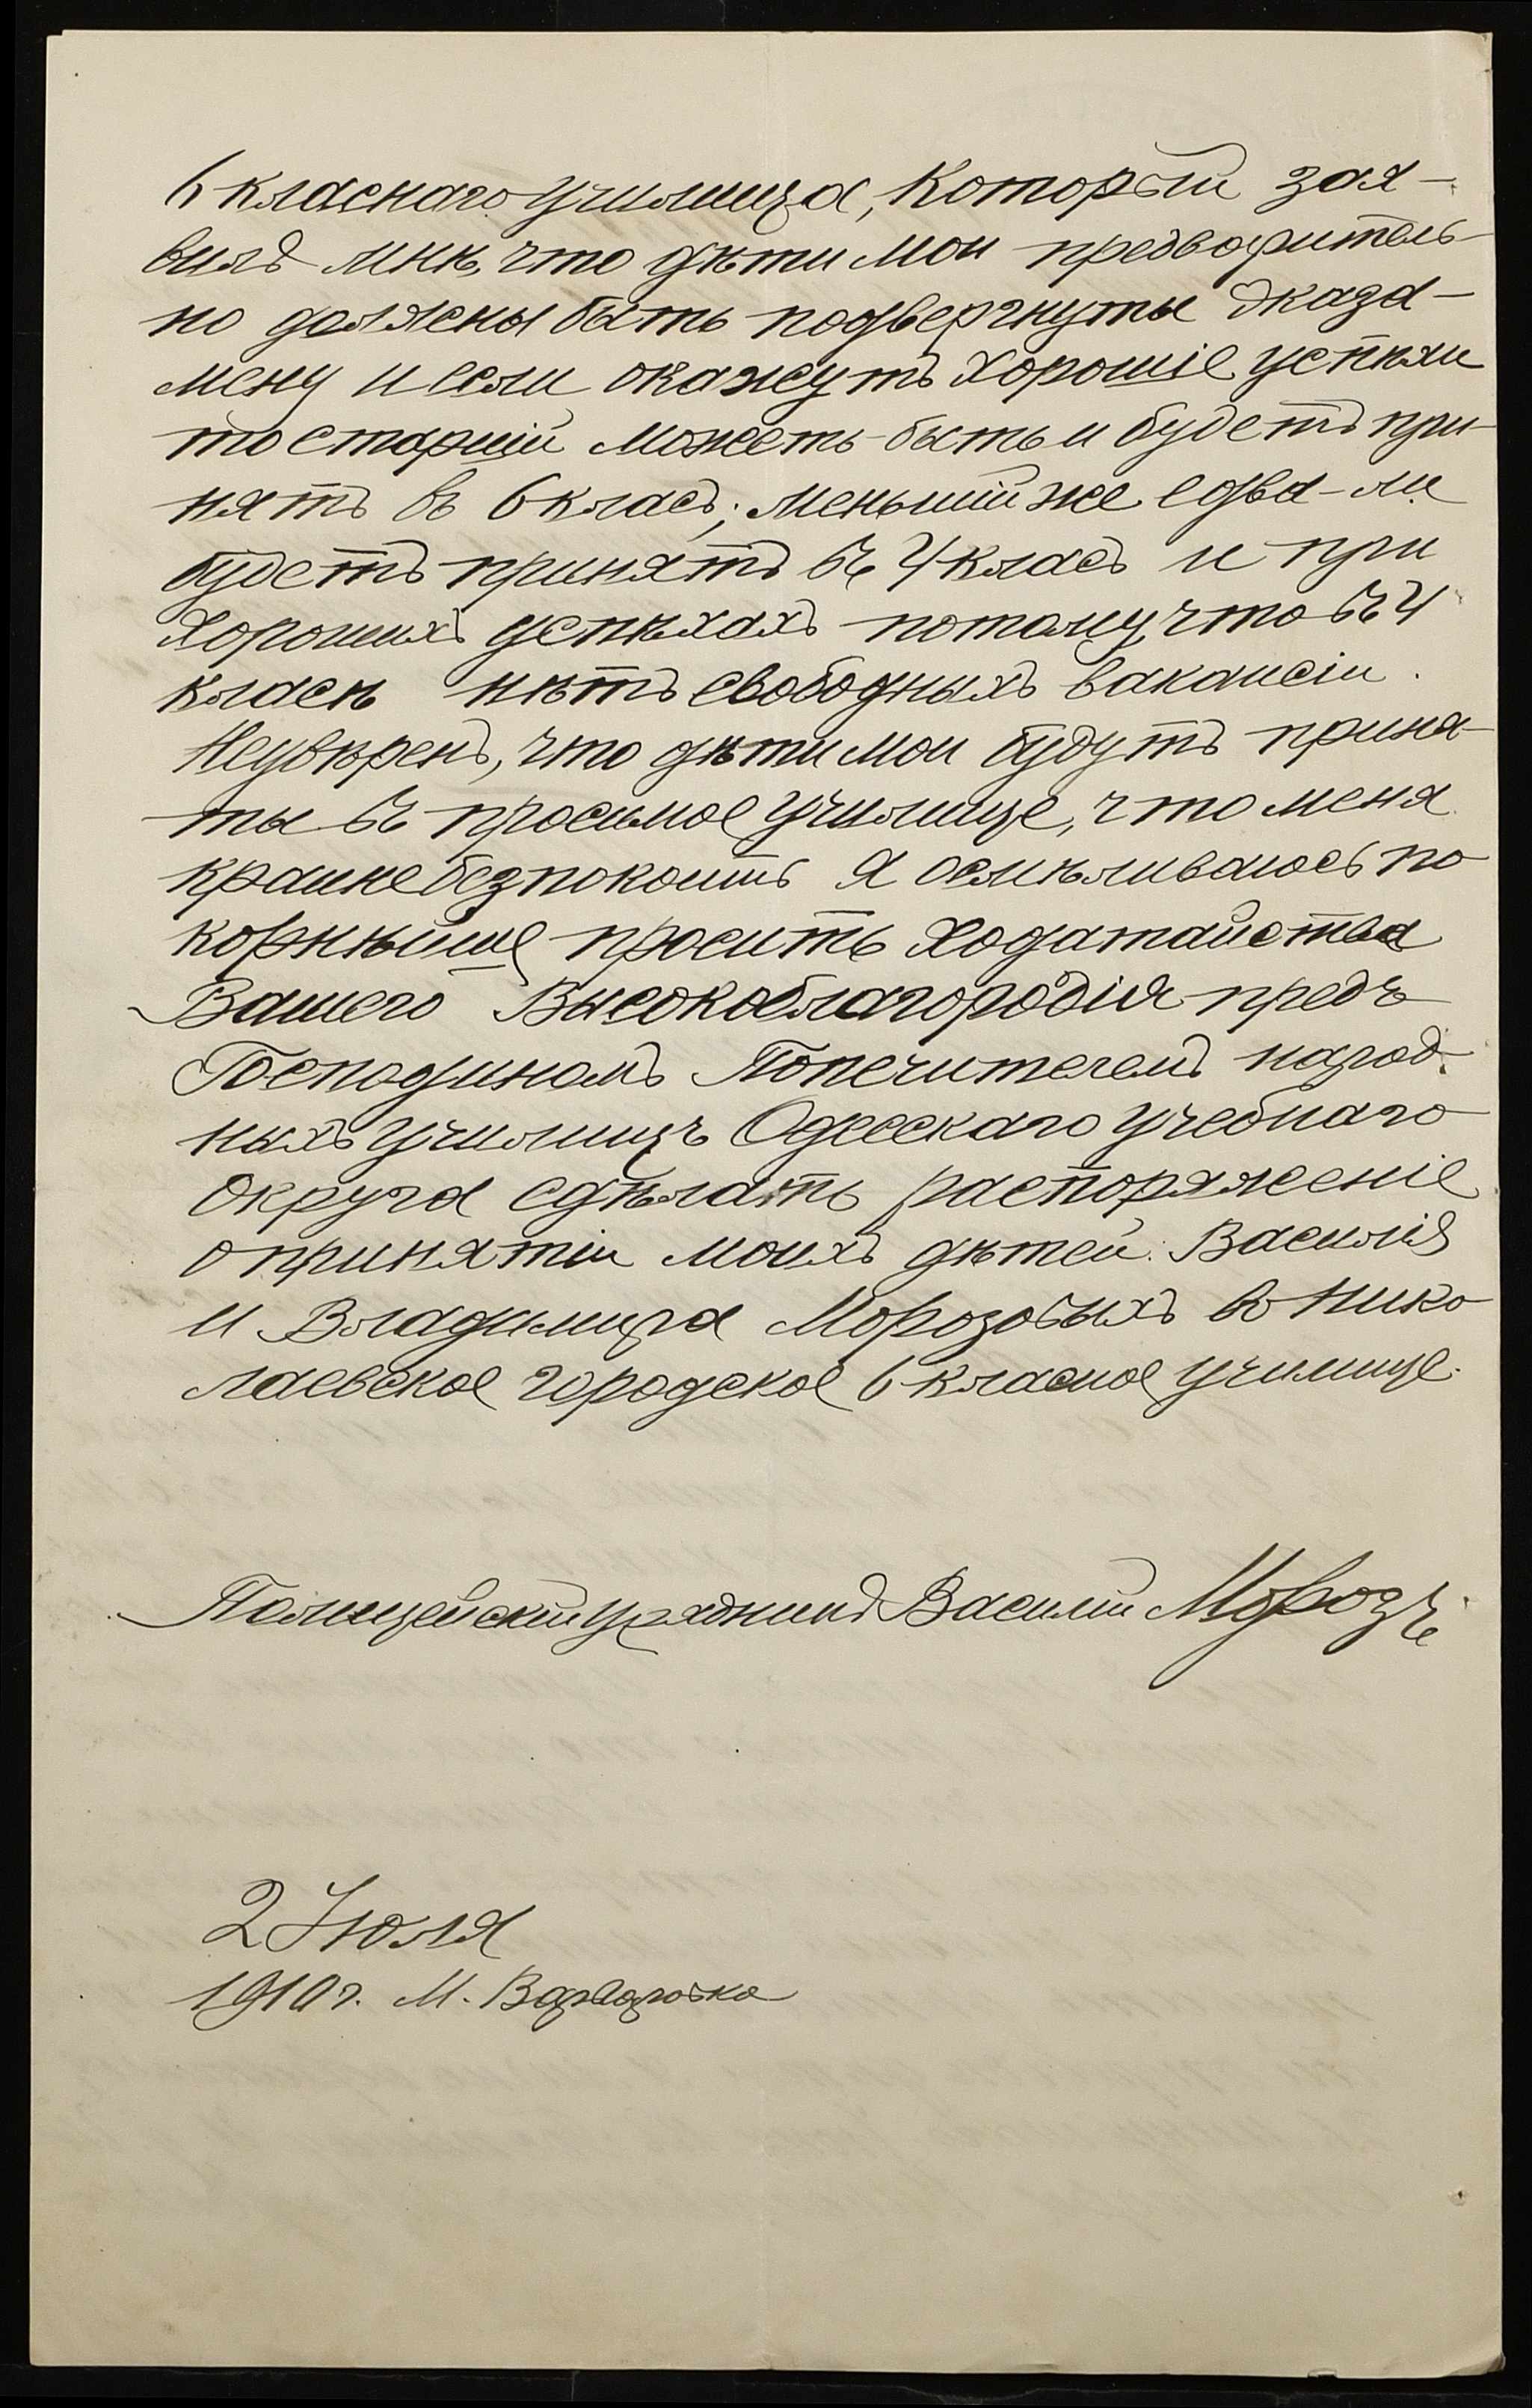 6 класнаго училища, который зая-
вилъ мнѣ, что дѣти мои предваритель-
но должены быть подвергнуты экза-
мену и если окажутъ хорошіе успѣхи
то старшій можетъ-быть и будетъ при-
нятъ въ 6 класъ; меньшій же едва-ли
будетъ принятъ въ 4 класъ и при
хорошихъ успѣхахъ потому, что въ 4
класѣ нѣтъ свободныхъ вакансіи.
Неувѣренъ, что дѣти мои будутъ приня-
ты въ просимое училище, что меня
крайне безпокоитъ я осмѣливаюсь по
корнѣйше просить ходатайства
Вашего Высокоблагородія предъ
Господиномъ Попечителемъ народ-
ныхъ училищъ Одесскаго учебнаго
Округа сдѣлать распоряженіе
о принятіи моихъ дѣтей: Василія
и Владимира Морозовыхъ во Нико
лаевское городское 6 класное училище.
Полицейскій урядникъ Василій Морозъ
2 Июля
1910 г. М. Варваровка